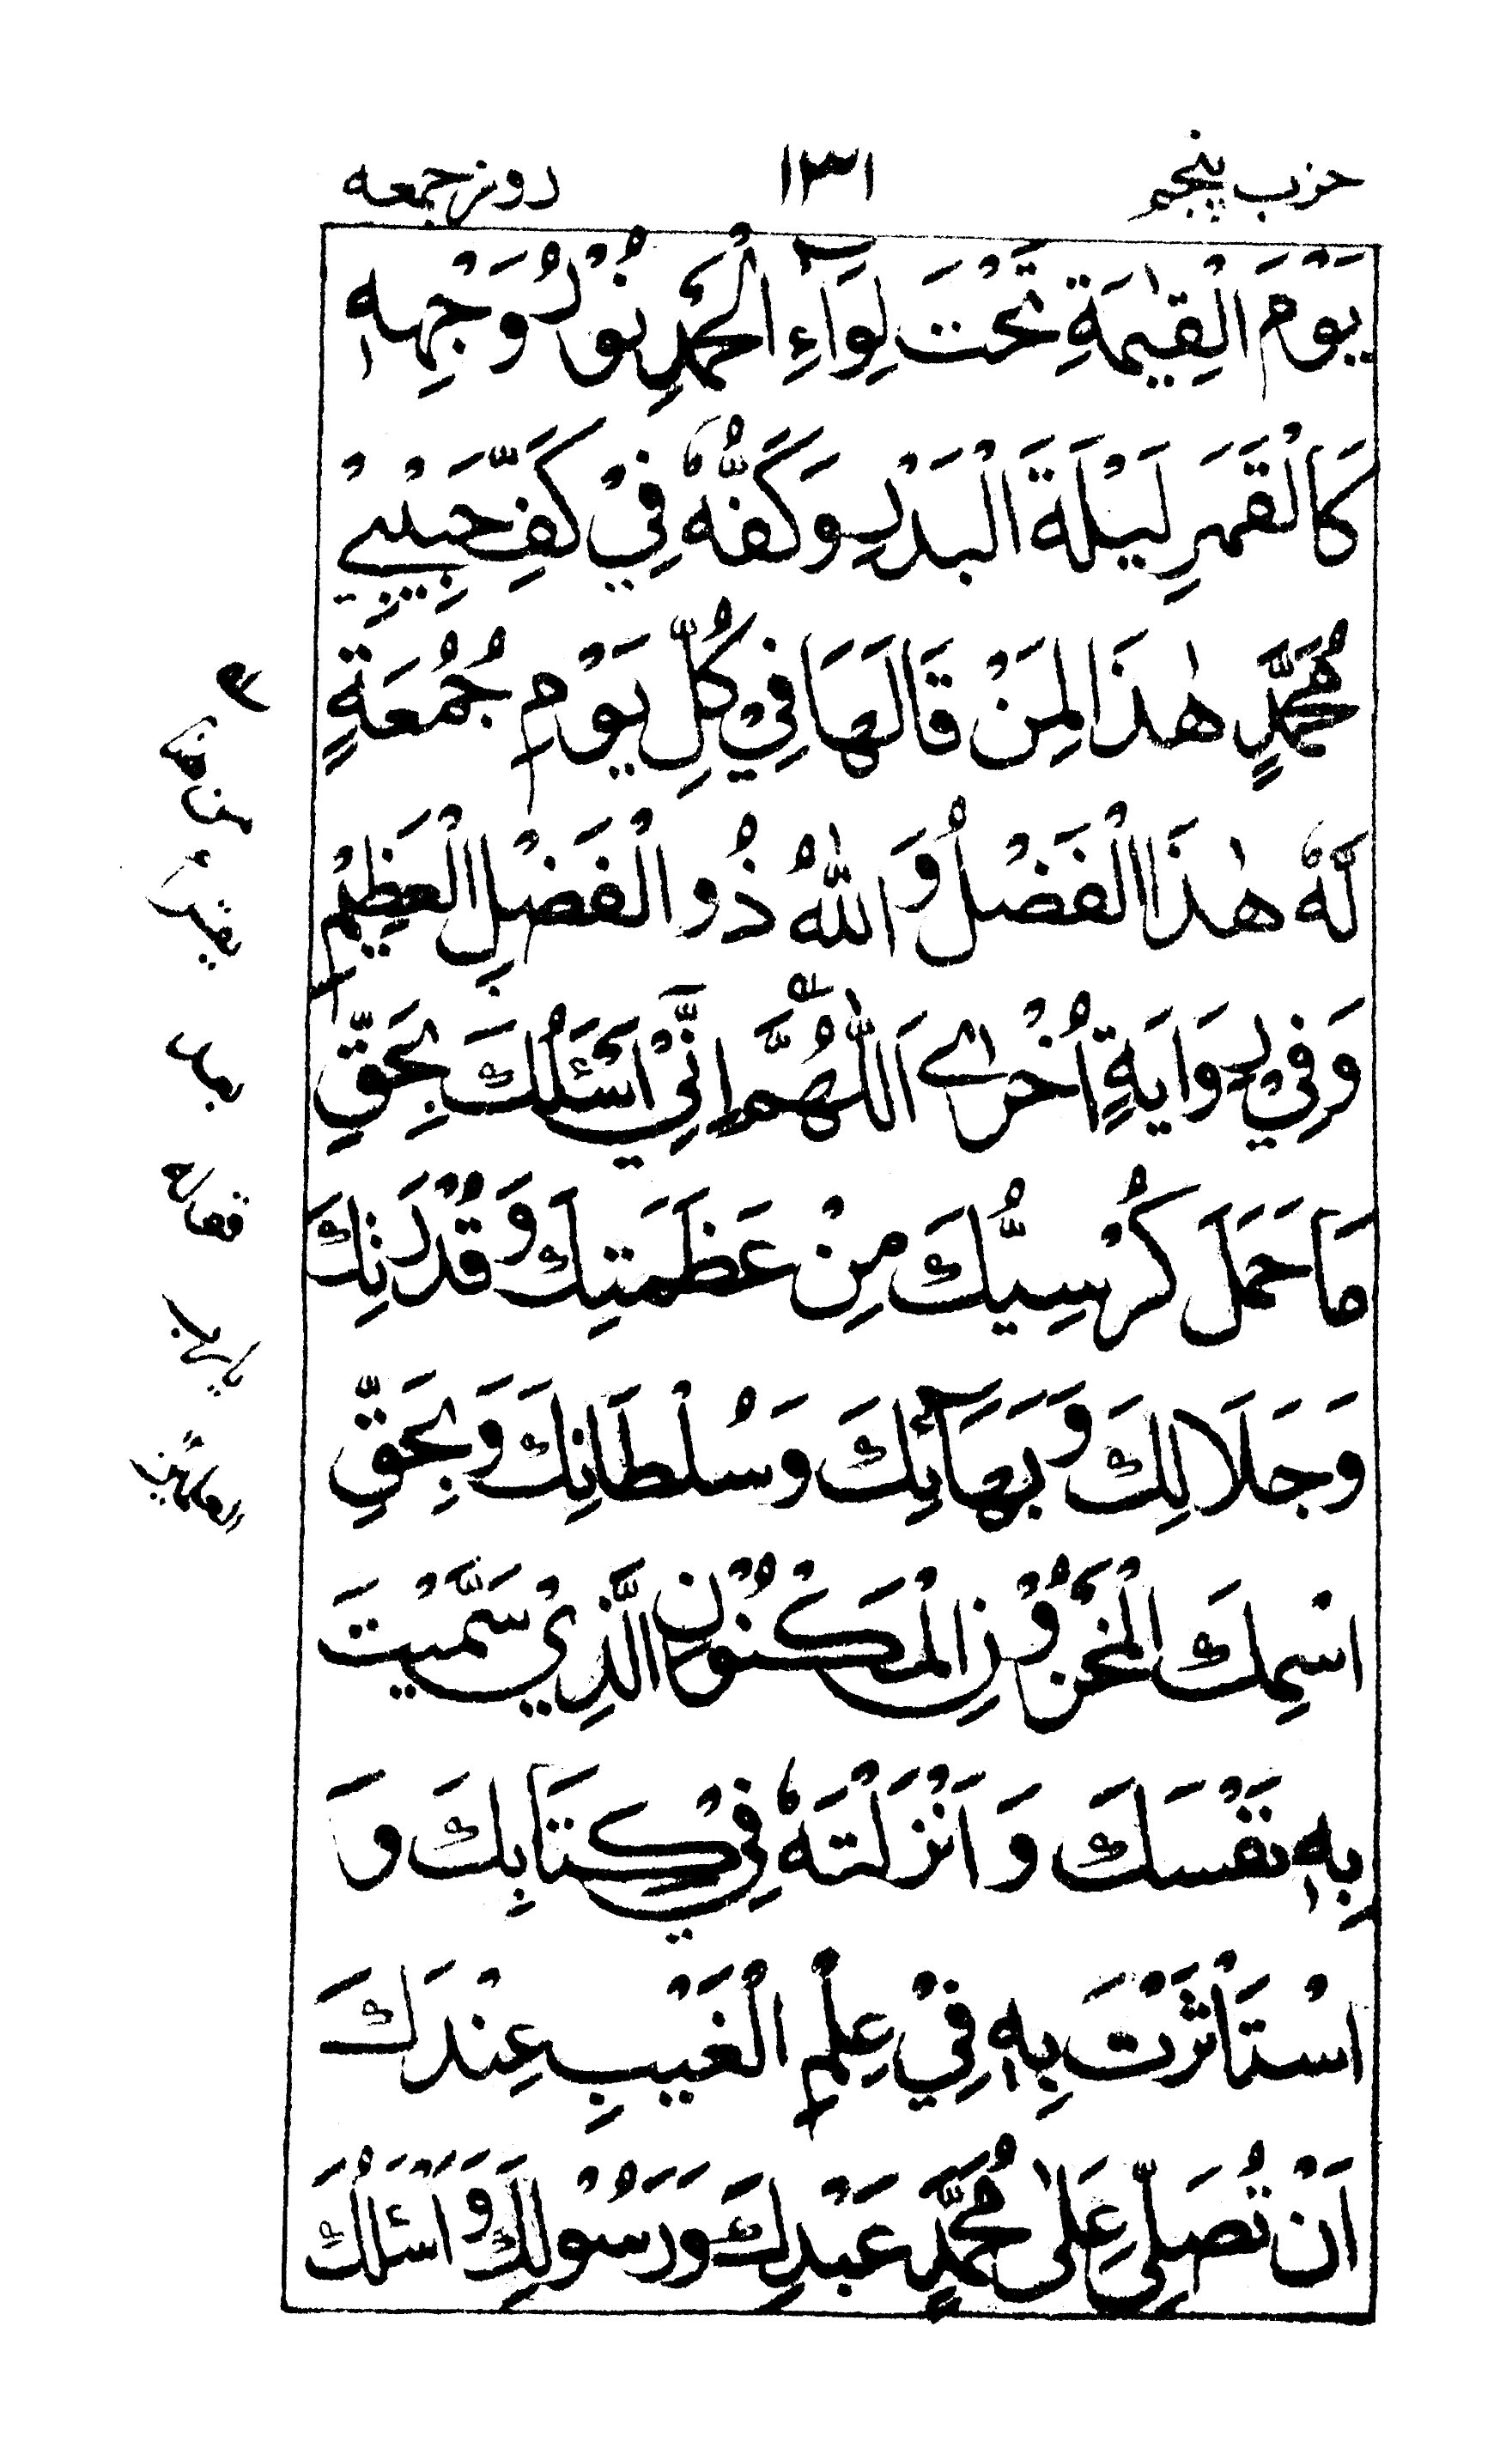 حزب پنجم
١٣١
روز جمعه
يَوْمَ الْقِيٰمَةِ تَحْتَ لِوَآءِ الْحَمْدِ نُوْرُ وَجْهِهٖ
كَالْقَمَرِ لَيْلَةَ الْبَدْرِ وَكَفُّهٗ فِيْ كَفِّ حَبِيْبِيْ
مُحَمَّدٍ هٰذَا لِمَنْ قَالَهَا فِيْ كُلِّ يَوْمِ جُمُعَةٍ
لَهٗ هٰذَا الْفَضْلُ وَ اللّٰهُ ذُو الْفَضْلِ الْعَظِيْمِ
وَفِيْ رِوَايَةٍ اُخْرٰى اَللّٰهُمَّ اِنِّيْ اَسْئَلُكَ بِحَقِّ
مَا حَمَلَ كُرْسِيُّكَ مِنْ عَظَمَتِكَ وَ قُدْرَتِكَ
وَجَلَالِكَ وَ بَهَآئِكَ وَسُلْطَانِكَ وَ بِحَقِّ
اسْمِكَ الْمَخْزُوْنِ الْمَكْنُوْنِ الَّذِيْ سَمَّيْتَ
بِهٖ نَفْسَكَ وَ اَنْزَلْتَهٗ فِيْ كِتَابِكَ وَ
اسْتَاْثَرْتَ بِهٖ فِيْ عِلْمِ الْغَيْبِ عِنْدَكَ
اَنْ تُصَلِّيَ عَلٰى مُحَمَّدٍ عَبْدِكَ وَرَسُوْلِكَ وَ اَسْئَلُكَ
من هنا
يقرأ
بعد
العالمين